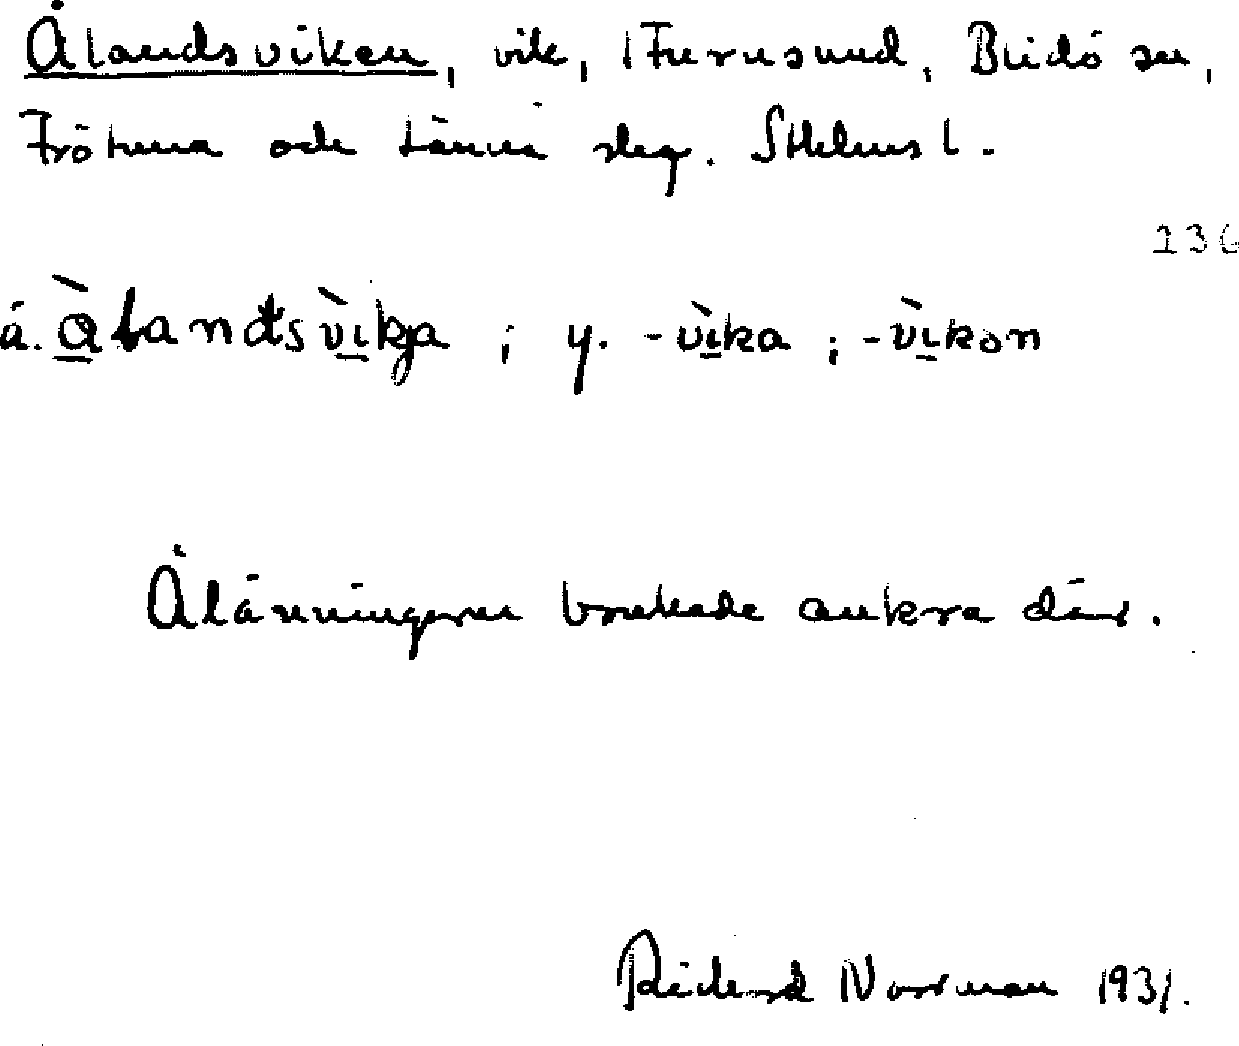 Ålandsviken, vik, i Furusund, Blidö sn,
Frötuna och Länna slg. Sthlms l.
236
ä. àlandsvìkja ; y. -vìka ; -vìkən
Ålänningarna brukade ankra där.
Rickard Norrman 1931.